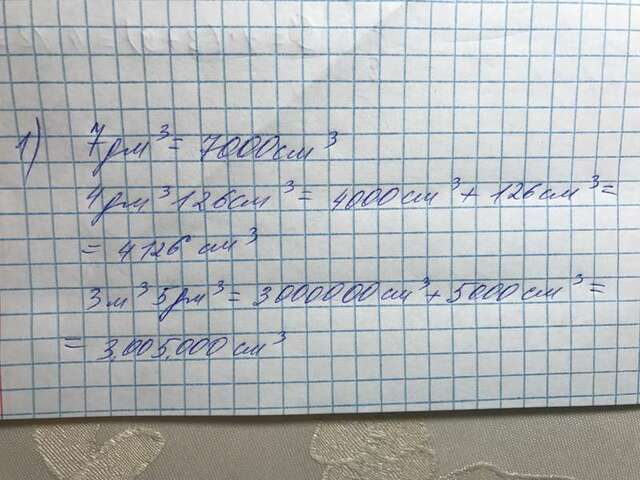 1) 7 дм³ = 7000 см³
4 дм³ 126 см³ = 4000 см³ + 126 см³ =
= 4126 см³
3 м³ 5 дм³ = 3000000 см³ + 5000 см³ =
= 3.005.000 см³